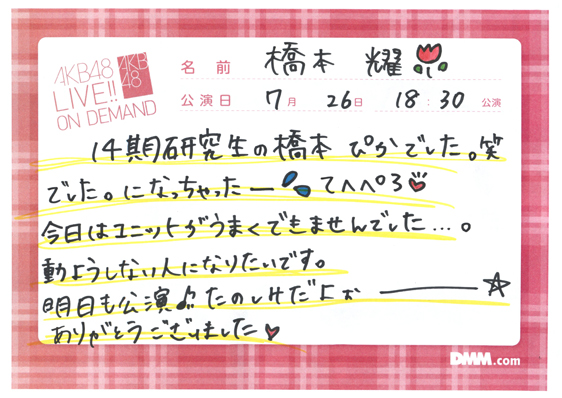 AKB48
LIVE!!
ON DEMAND
AKB
48
名前 橋本 耀
公演日 7月 26日 18:30 公演
14期研究生の橋本 ぴかでした。笑
でした。になっちゃったー てへぺろ
今日はユニットがうまくできませんでした…。
動ようしない人になりたいです。
明日も公演♪たのしみだよぉ ———☆
ありがとうございました
DMM.com